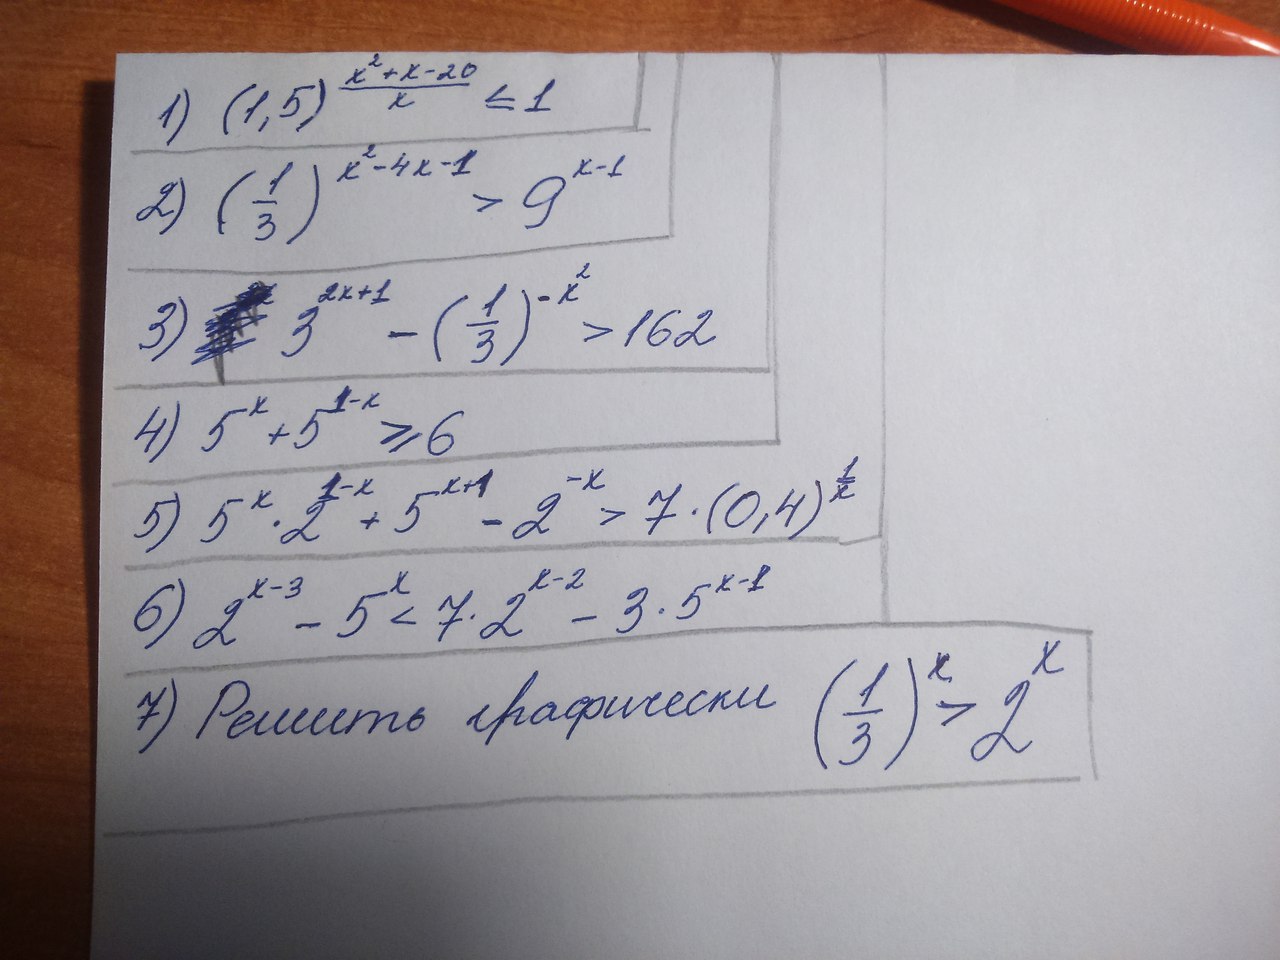 1) (1,5)^((x²+x-20)/x) ≤ 1
2) (1/3)^(x²-4x-1) > 9^(x-1)
3) 3^(2x+1) - (1/3)^(-x²) > 162
4) 5^x + 5^(1-x) ≥ 6
5) 5^x · 2^(1-x) + 5^(x+1) - 2^(-x) > 7 · (0,4)^(1/x)
6) 2^(x-3) - 5^x < 7 · 2^(x-2) - 3 · 5^(x-1)
7) Решить графически (1/3)^x > 2^x